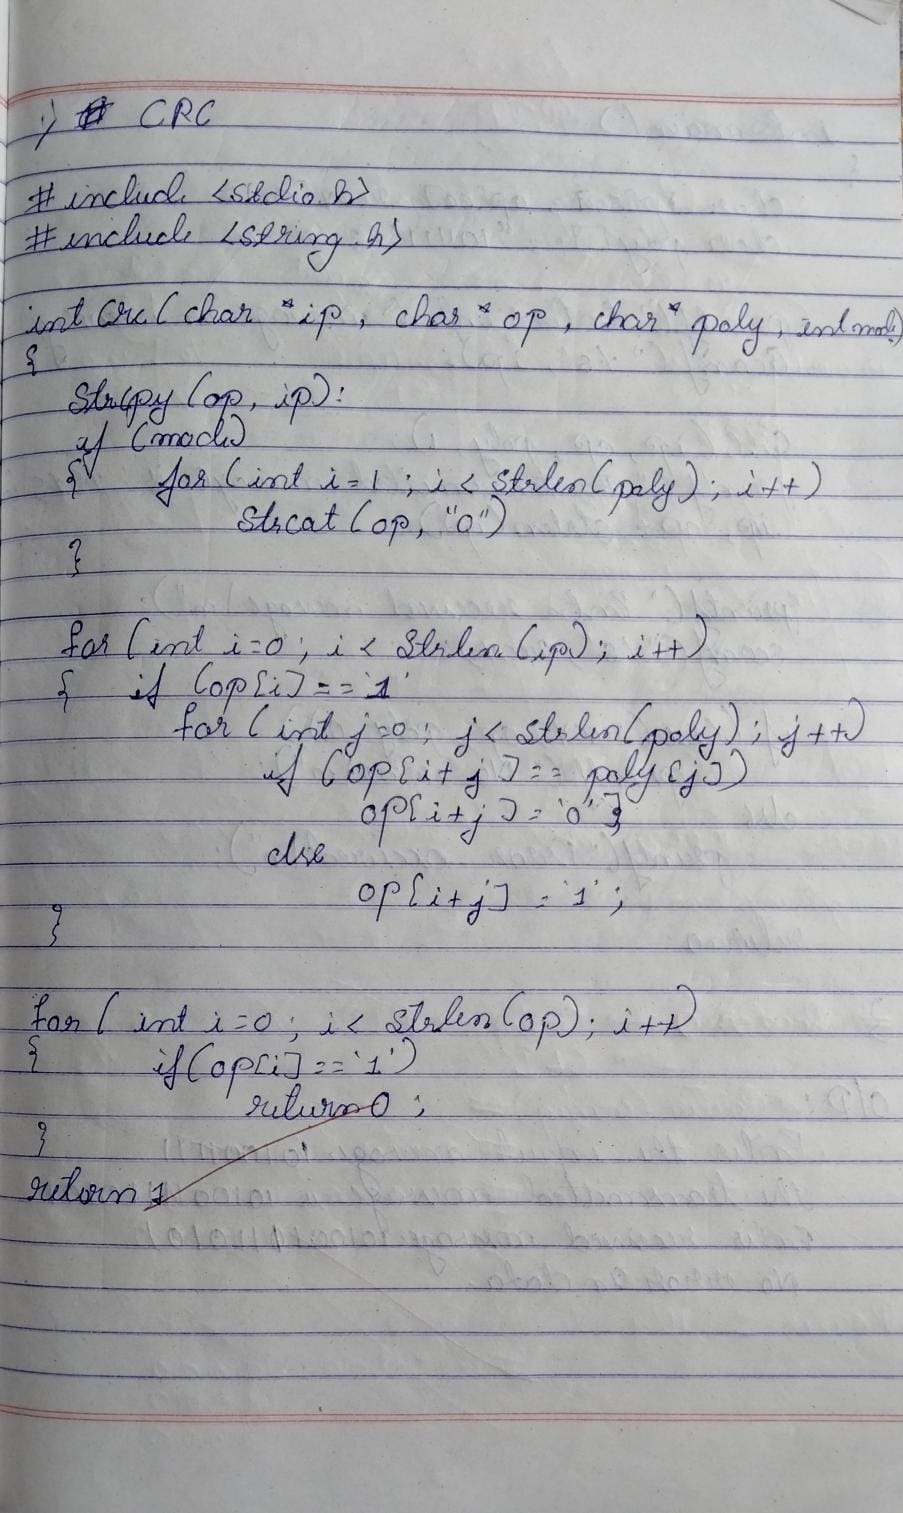 1) # CRC
#include <stdio.h>
#include <string.h>
int crc (char *ip, char* op, char* poly, int mode)
{
strcpy (op, ip);
if (mode)
{ for (int i=1; i < strlen(poly); i++)
strcat (op, "0")
}
for (int i=0; i < strlen (ip); i++)
{ if (op[i] == '1'
for (int j=0; j < strlen(poly); j++)
if (op[i+j] == poly[j])
op[i+j] = '0';
else
op[i+j] = '1';
}
for (int i=0; i < strlen (op); i++)
{ if (op[i] == '1')
return 0;
}
return 1